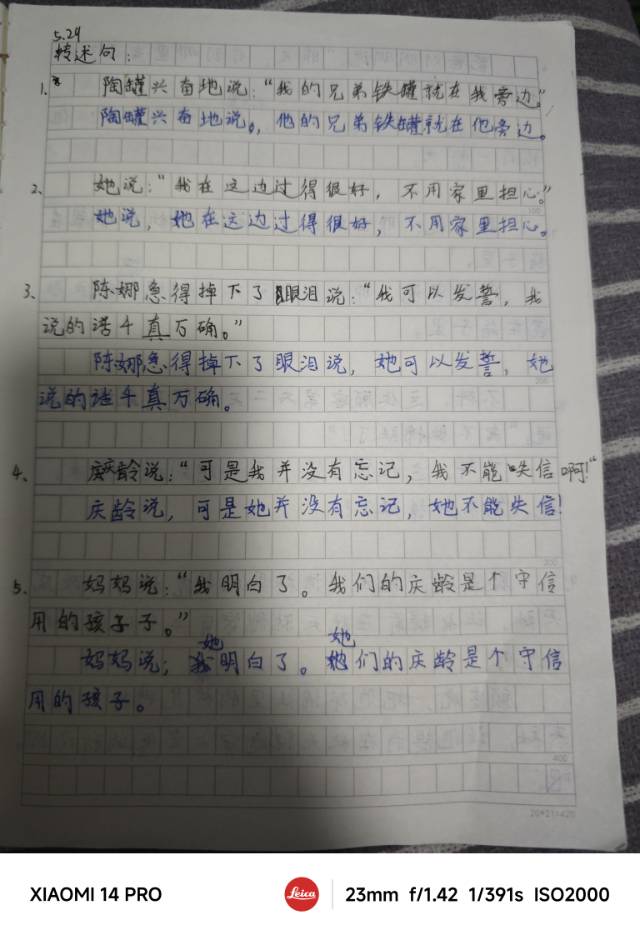 5.24
转述句：
1、 陶罐兴奋地说："我的兄弟铁罐就在我旁边"
陶罐兴奋地说。，他的兄弟铁罐就在他旁边。
2、 她说："我在这边过得很好，不用家里担心。"
她说，她在这边过得很好，不用家里担心。
3、 陈娜急得掉下了眼泪说："我可以发誓，我
说的话千真万确。"
陈娜急得掉下了眼泪说，她可以发誓，她
说的话千真万确。
4、 庆龄说："可是我并没有忘记，我不能失信啊！"
庆龄说，可是她并没有忘记，她不能失信！
5、 妈妈说："我明白了。我们的庆龄是个守信
用的孩子子。"
妈妈说；她明白了。她们的庆龄是个守信
用的孩子。
400
20×21=420
XIAOMI 14 PRO
Leica
23mm f/1.42 1/391s ISO2000